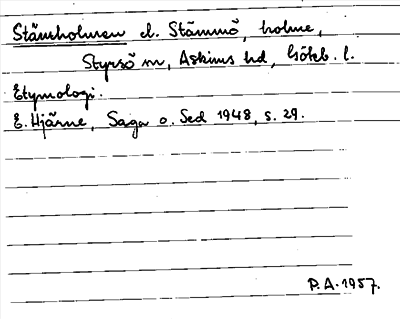 Stämholmen el. Stämmö, holme,
Styrsö sn, Askims hd, Göteb. l.
Etymologi.
E. Hjärne, Saga o. Sed 1948, s. 29.
P.A. 1957.